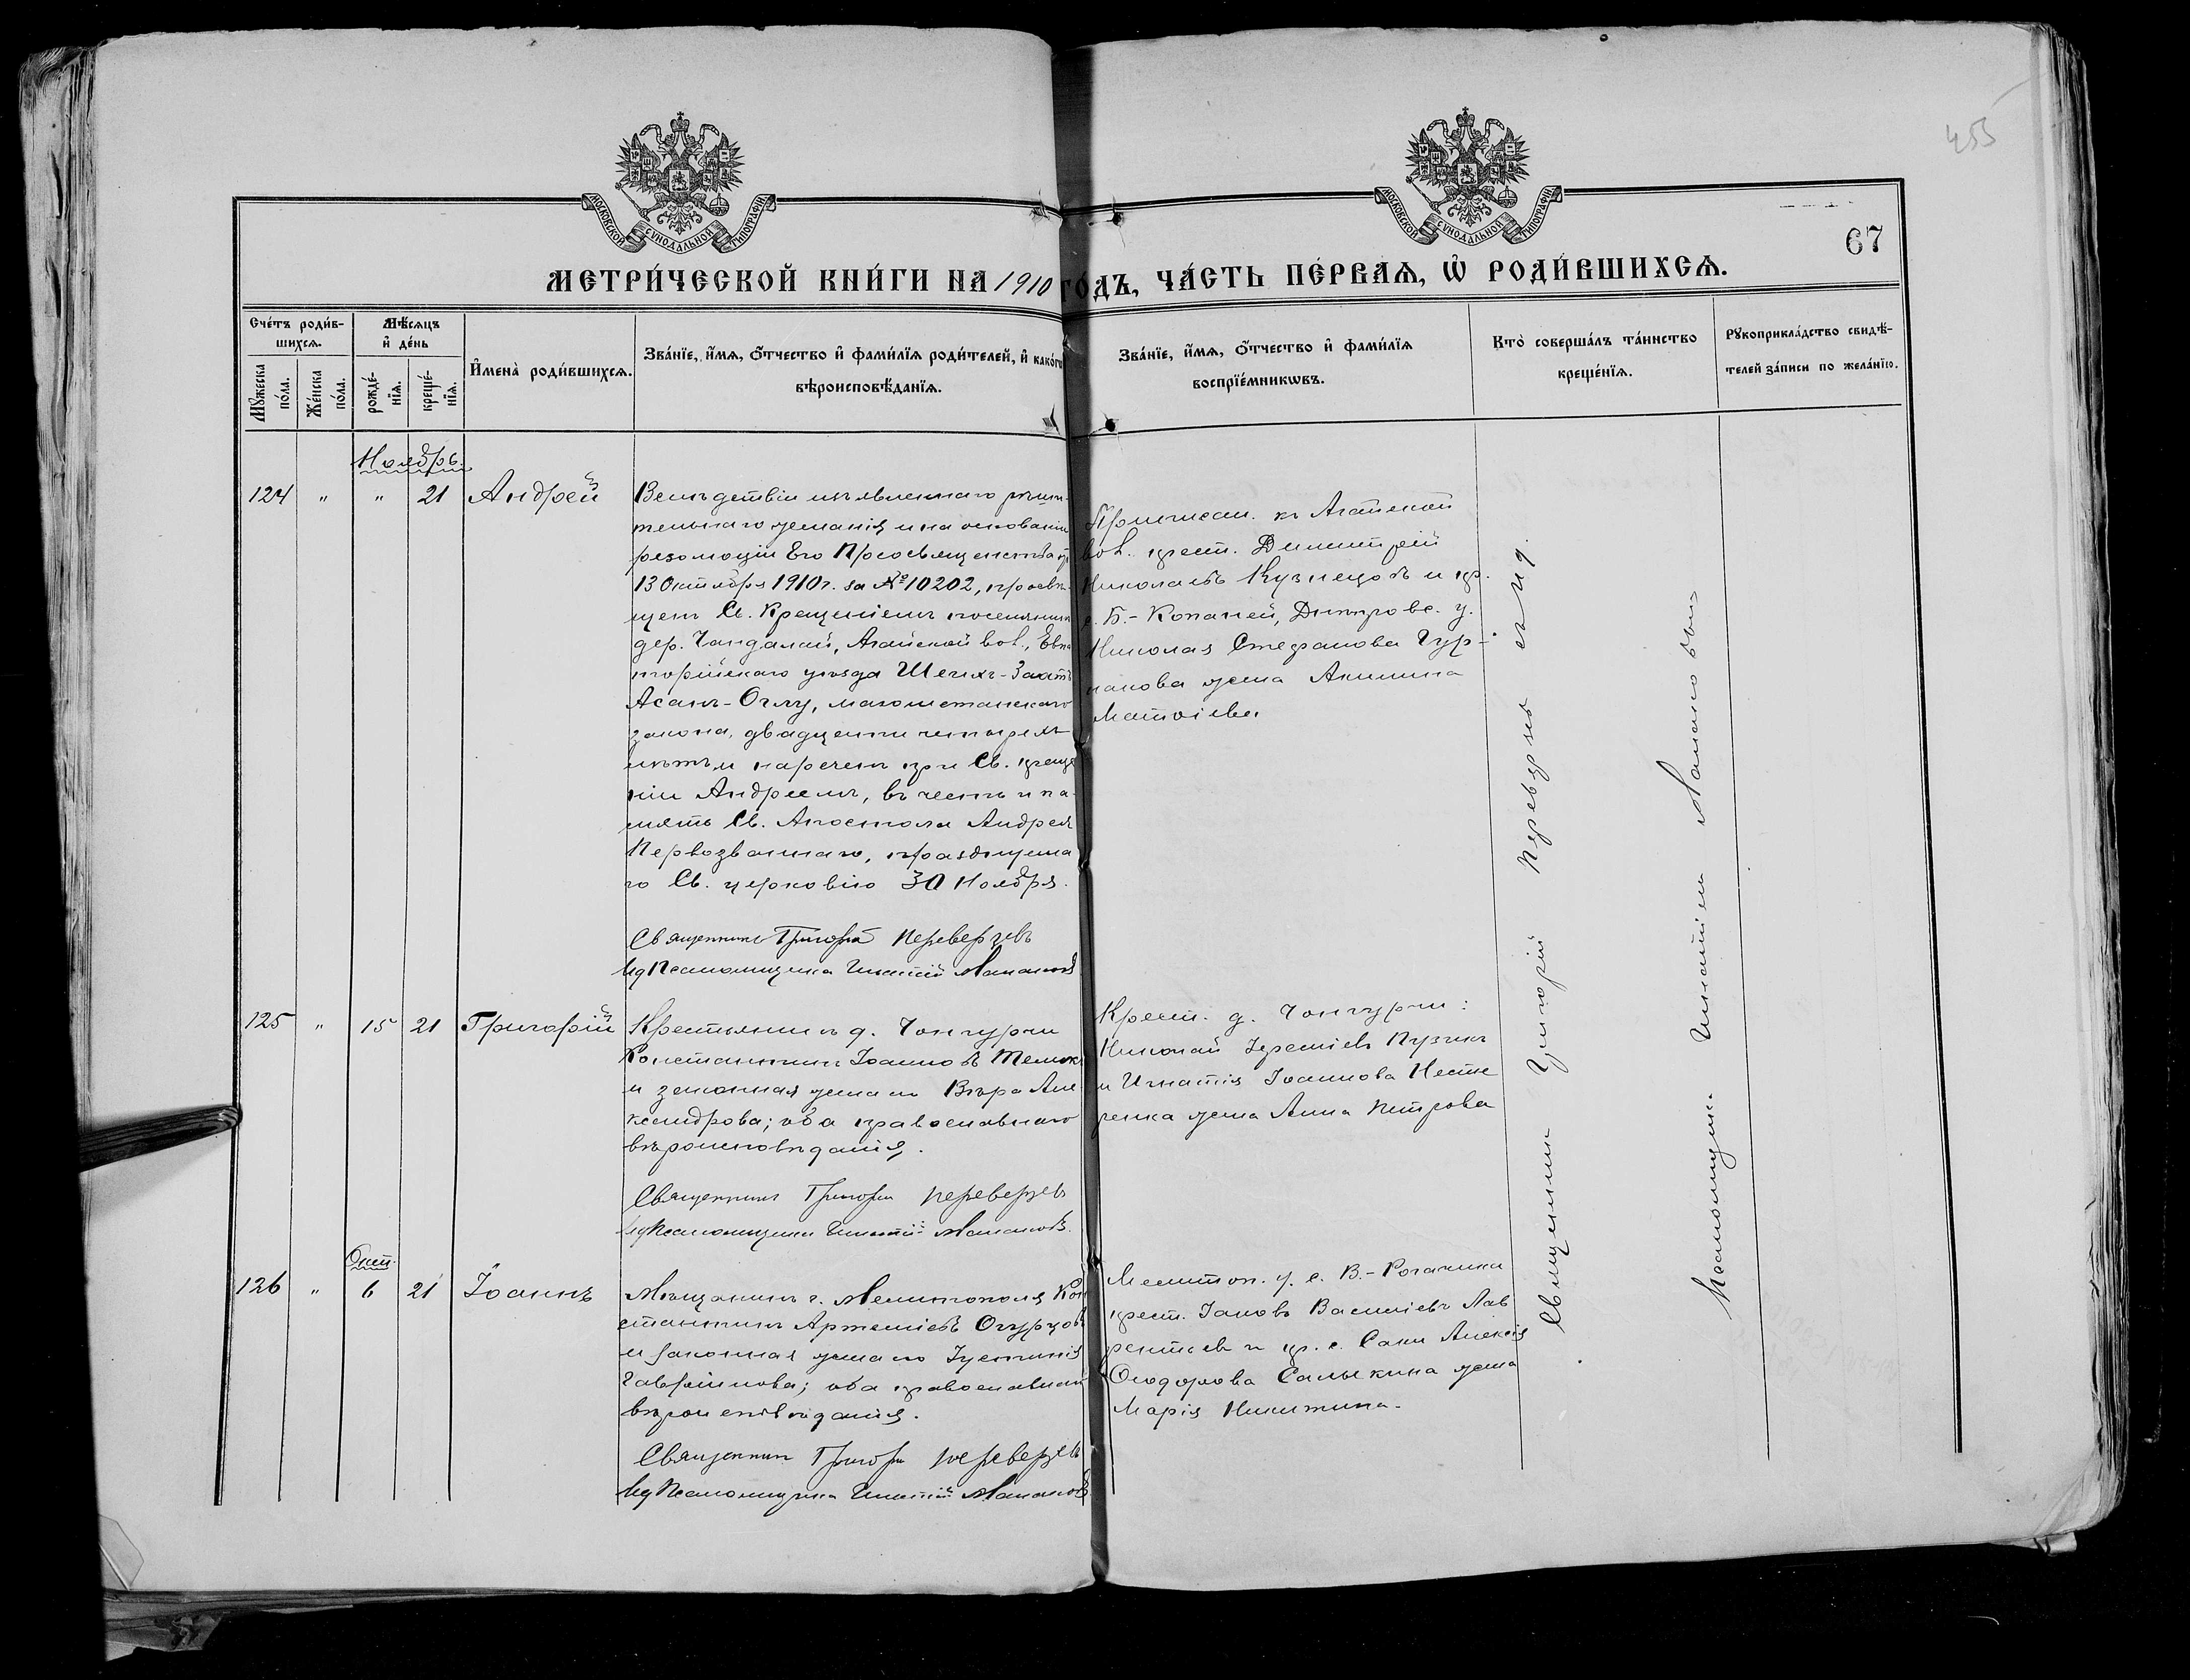 455
МОСКОВСКОЙ СѴНОДАЛЬНОЙ ТИПОГРАФІИ
МОСКОВСКОЙ СѴНОДАЛЬНОЙ ТИПОГРАФІИ
67
МЕТРИ́ЧЕСКОЙ КНИ́ГИ НА 1910 ГО́ДЪ, ЧА́СТЬ ПЕ́РВАѦ, Ѡ҆ РОДИ́ВШИХСѦ.
Сче́тъ роди́в-
шихсѧ.
Мѣ́сѧцъ
и҆ де́нь
Мꙋ́жеска
по́ла.
Же́нска
по́ла.
рожде́-
нїѧ.
креще́-
нїѧ.
И҆мена̀ роди́вшихсѧ.
Зва́нїе, и҆́мѧ, ѻ҆́тчество и҆ фами́лїѧ роди́телей, и҆ како́гѡ
вѣроисповѣ́данїѧ.
Зва́нїе, и҆́мѧ, ѻ҆́тчество и҆ фами́лїѧ
воспрїе́мникѡвъ.
Кто̀ соверша́лъ та́инство
креще́нїѧ.
Рꙋкоприкла́дство свидѣ́-
телей за́писи по жела́нїю.
Ноябрь.
124 " " 21 Андрей
Вслѣдствіи изъявленнаго рѣши-
тельнаго желанія и на основаніи
резолюціи Его Преосвященства
13 Октября 1910 г. за № 10202, просвѣ-
щенъ Св. Крещеніемъ поселянинъ
дер. Чандалай, Агайской вол., Евпа
торійскаго уѣзда Шеихъ-Заатъ
Асанъ-Оглу, магометанскаго
закона, двадцати четырехъ
лѣтъ и нареченъ при Св. креще
ніи Андреемъ, въ честь и па-
мять Св. Апостола Андрея
Первозваннаго, празднуема
го Св. церковію 30 Ноября.
Священникъ Григорій Переверзевъ
Ид Псаломщика Игнатій
Приписан. къ Агайской
вол. крест. Димитрій
Николаевъ Кузнецовъ и кр.
с. Б.-Копаней, Днѣпровс. у.
Николая Стефанова Гур-
жена Акилина
Матѳіева
125 " 15 21 Григорій
Крестьянинъ д. Чонгурчи
Константинъ Іоанновъ
и законная жена его Вѣра Але
ксандрова; оба православнаго
вѣроисповѣданія.
Священникъ Григорій Переверзевъ
Ид Псаломщика Игнатій
Крест. д. Чонгурчи:
Николай Іереміевъ Пузикъ
и Игнатія Іоаннова Несте
ренка жена Анна Петрова
Окт.
126 " 6 21 Іоаннъ
Мѣщанинъ г. Мелитополя Кон
стантинъ Артеміевъ Огурцовъ
и законная жена его Іустинія
Гавріилова; оба православнаго
вѣроисповѣданія.
Священникъ Григорій Переверзевъ
Ид Псаломщика Игнатій
Мелитоп. у. с. В.-Рогачика
крест. Іаковъ Василіевъ Лав
рентьевъ и кр. с. Саки Алексія
Ѳеодорова Салыкина жена
Марія Никитина.
Священникъ Григорій Переверзевъ
Псаломщик. Игнатіем